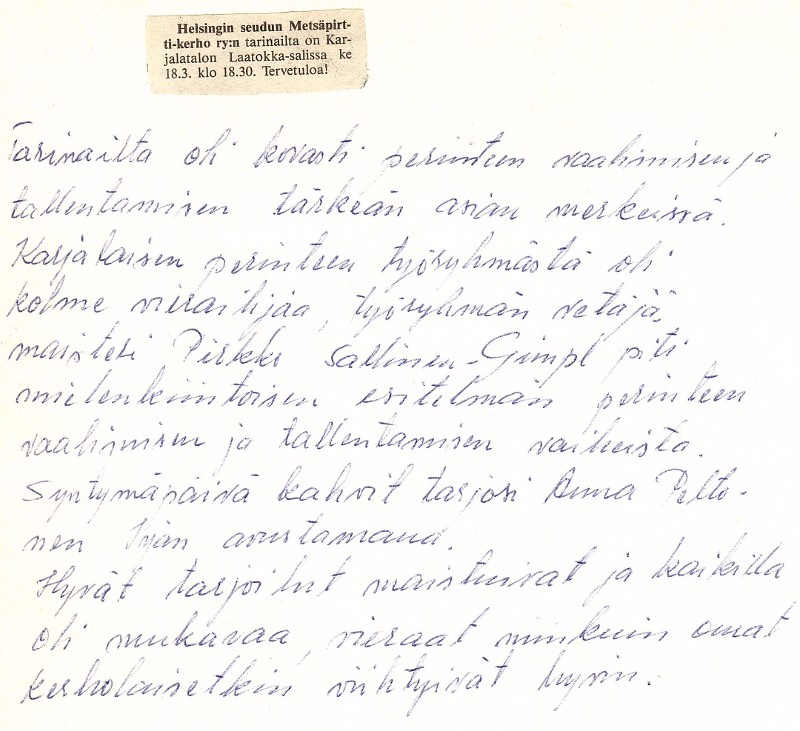 Helsingin seudun Metsäpirt-
ti-kerho ry:n tarinailta on Kar-
jalatalon Laatokka-salissa ke
18.3. klo 18.30. Tervetuloa!
Tarinailta oli kovasti perinteen vaalimisen ja
tallentamisen tärkeän asian merkeissä.
Karjalaisen perinteen työryhmästä oli
kolme vierailijaa, työryhmän vetäjä,
maisteri Pirkko Sallinen-Gimpl piti
mielenkiintoisen esitelmän perinteen
vaalimisen ja tallentamisen vaiheista.
Syntymäpäivä kahvit tarjosi Anna Pelto-
nen avustamana.
Hyvät tarjoilut maistuivat ja kaikilla
oli mukavaa, vieraat niinkuin omat
kerholaisetkin viihtyivät hyvin.